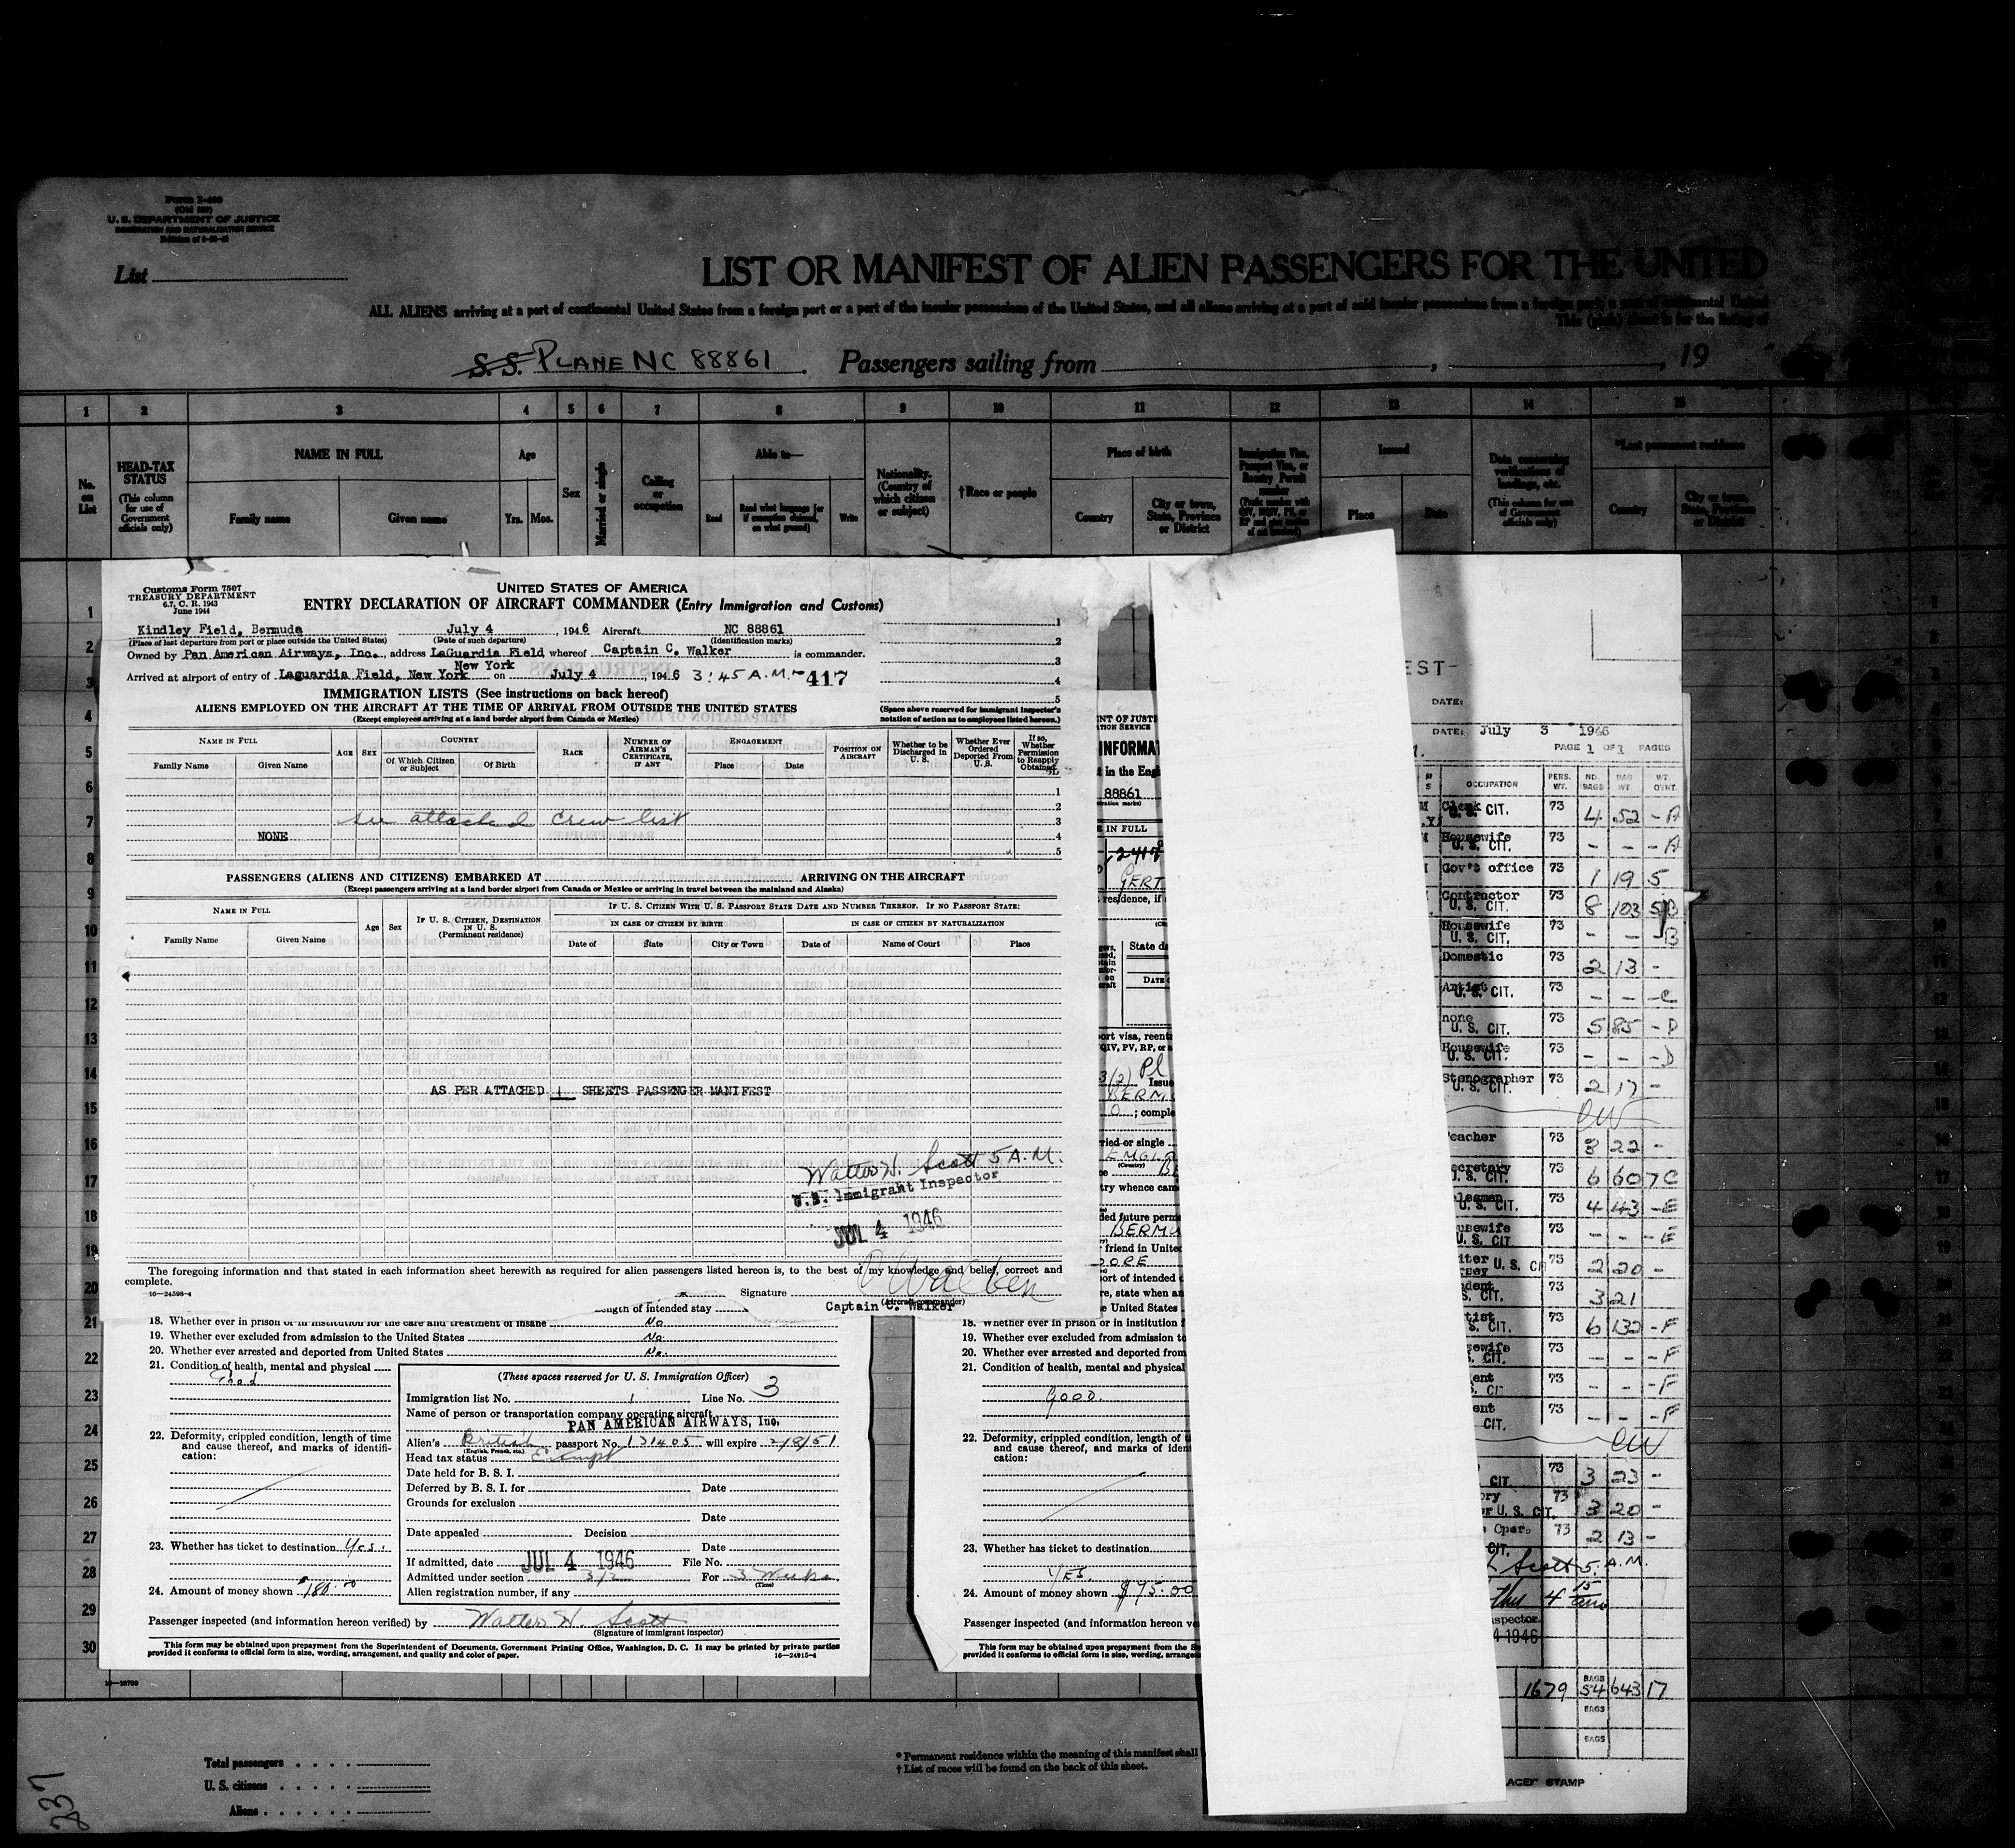 U. S. DEPARTMENT OF JUSTICE
IMMIGRATION AND NATURALIZATION SERVICE
List
LIST OR MANIFEST OF ALIEN PASSENGERS FOR THE UNITED
ALL ALIENS arriving at a port of continental United States from a foreign port or a port of the insular possessions of the United States, and all aliens arriving at a port of said insular possessions from a foreign port, a port of continental United
This (pink) sheet is for the listing of
S.S. PLANE NC 88861 . Passengers sailing from , , 19
1 2 3 4 5 6 7 8 9 10 11 12 13 14 15
No. on List
HEAD-TAX STATUS
(This column for use of Government officials only)
NAME IN FULL
Family name Given name
Age
Yrs. Mos.
Sex
Married or single
Calling or occupation
Able to—
Read Read what language [or if exemption claimed, on what ground] Write
Nationality. (Country of which citizen or subject)
†Race or people
Place of birth
Country City or town, State, Province or District
Issued
Place Date
Data concerning verifications of landings, etc.
(This column for use of Government officials only)
*Last permanent residence
Country City or town, State, Province or District
Customs Form 7507
TREASURY DEPARTMENT
6.7, C. R. 1943
June 1944
UNITED STATES OF AMERICA
ENTRY DECLARATION OF AIRCRAFT COMMANDER (Entry Immigration and Customs)
Kindley Field, Bermuda July 4 , 1946 Aircraft NC 88861
(Place of last departure from port or place outside the United States) (Date of such departure) (Identification marks)
Owned by Pan American Airways, Inc., address LaGuardia Field whereof Captain C. Walker is commander.
New York
Arrived at airport of entry of Laguardia Field, New York on July 4 , 1946 3:45 A.M. - 417
IMMIGRATION LISTS (See instructions on back hereof)
ALIENS EMPLOYED ON THE AIRCRAFT AT THE TIME OF ARRIVAL FROM OUTSIDE THE UNITED STATES
(Except employees arriving at a land border airport from Canada or Mexico)
(Space above reserved for immigrant inspector's notation of action as to employees listed hereon.)
NAME IN FULL
Family Name Given Name
AGE SEX
COUNTRY
Of Which Citizen or Subject Of Birth
RACE
NUMBER OF AIRMAN'S CERTIFICATE, IF ANY
ENGAGEMENT
Place Date
POSITION ON AIRCRAFT
Whether to be Discharged in U. S.
Whether Ever Ordered Deported From U. S.
If so, Whether Permission to Reapply Obtained
see attached crew list
NONE
PASSENGERS (ALIENS AND CITIZENS) EMBARKED AT ARRIVING ON THE AIRCRAFT
(Except passengers arriving at a land border airport from Canada or Mexico or arriving in travel between the mainland and Alaska)
NAME IN FULL
Family Name Given Name
Age Sex
IF U. S. CITIZEN, DESTINATION IN U. S. (Permanent residence)
IF U. S. CITIZEN WITH U. S. PASSPORT STATE DATE AND NUMBER THEREOF. IF NO PASSPORT STATE:
IN CASE OF CITIZEN BY BIRTH IN CASE OF CITIZEN BY NATURALIZATION
Date of State City or Town Date of Name of Court Place
AS PER ATTACHED 1 SHEETS PASSENGER MANIFEST
Walter H. Scott 5 A.M.
U.S. Immigrant Inspector
JUL 4 1946
The foregoing information and that stated in each information sheet herewith as required for alien passengers listed hereon is, to the best of my knowledge and belief, correct and
complete.
16-24598-4
Signature C Walker
(Aircraft commander)
Captain C. Walker
length of intended stay
18. Whether ever in prison or in institution for the care and treatment of insane No
19. Whether ever excluded from admission to the United States No.
20. Whether ever arrested and deported from United States No.
21. Condition of health, mental and physical
Good
22. Deformity, crippled condition, length of time and cause thereof, and marks of identification:
23. Whether has ticket to destination Yes.
24. Amount of money shown $180.00
(These spaces reserved for U. S. Immigration Officer)
Immigration list No. 1 Line No. 3
Name of person or transportation company operating aircraft
PAN AMERICAN AIRWAYS, Inc.
Alien's British passport No. 131405 will expire 2/8/51
(English, French, etc.)
Head tax status Exempt
Date held for B. S. I.
Deferred by B. S. I. for Date
Grounds for exclusion
Date
Date appealed Decision
Date
If admitted, date JUL 4 1946 File No.
Admitted under section 3/2 For 3 Weeks
(Time)
Alien registration number, if any
Passenger inspected (and information hereon verified) by Walter H. Scott
(Signature of immigrant inspector)
This form may be obtained upon prepayment from the Superintendent of Documents, Government Printing Office, Washington, D. C. It may be printed by private parties
provided it conforms to official form in size, wording, arrangement, and quality and color of paper. 16-24915-4
INFORMA
88861
E IN FULL
GERT
BERMU
18. Whether ever in prison or in institution
19. Whether ever excluded from admission to
20. Whether ever arrested and deported from
21. Condition of health, mental and physical
GOOD.
22. Deformity, crippled condition, length of
and cause thereof, and marks of iden
cation:
23. Whether has ticket to destination
YES.
24. Amount of money shown $75.00
Passenger inspected (and information hereon ve
This form may be obtained upon prepayment from the Su
provided it conforms to official form in size, wording, arrange
EST
DATE:
DATE: July 3 1946
PAGE 1 OF 1 PAGES
OCCUPATION PERS. WT. NO. BAGS BAG WT. WT. OVNT.
Clerk U. S. CIT. 73 4 52 - A
Housewife U. S. CIT. 73 - - - A
Gov't office 73 1 19 5
Contractor U. S. CIT. 73 8 103 5 B
Housewife U. S. CIT. 73 - - B
Domestic 73 2 13 -
Artist U. S. CIT. 73 - - - C
none U. S. CIT. 73 5 85 - D
Housewife U. S. CIT. 73 - - - D
Stenographer U. S. CIT. 73 2 17 -
CW
eacher 73 3 22 -
ecretary U. S. CIT. 73 6 60 7 C
lesman U. S. CIT. 73 4 43 - E
usewife U. S. CIT 73 - - - E
iter U. S. CIT 73 2 20 -
dent S. CIT. 73 3 21
tist S. CIT. 73 6 132 - F
sewife S. CIT. 73 - - - F
ent 73 - - - F
ent CIT. 73 - - - F
CW
CIT. 73 3 23 -
ory U. S. CIT. 73 3 20 -
Oper. CIT. 73 2 13 -
Scott 5. A.M.
nspector.
4 1946
1679 BAGS 54 643 17
BAGS
BAGS
ACED" STAMP
Total passengers
U. S. citizens
Aliens
* Permanent residence within the meaning of this manifest shall
† List of races will be found on the back of this sheet.
237